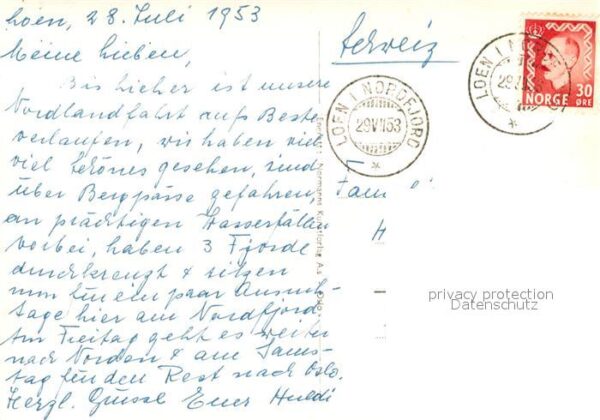 Loen, 28. Juli 1953
Meine Lieben,
Bis hieher ist unsere
Nordlandfahrt aufs Beste
verlaufen, wir haben viel
viel Schönes gesehen, sind
über Bergpässe gefahren,
an prächtigen Wasserfällen
vorbei, haben 3 Fjorde
durchkreuzt & sitzen
nun für ein paar
tage hier am Nordfjord
Am Freitag geht es weiter
nach Norden & am Sams-
tag für den Rest nach Oslo.
Herzl. Grüsse Euer Huldi
Normanns Kunstforlag A.s. Oslo
LOEN I NORDFJORD
29 VII 53
LOEN I NORDFJORD
NORGE 30
ØRE
Fam
H
privacy protection
Datenschutz